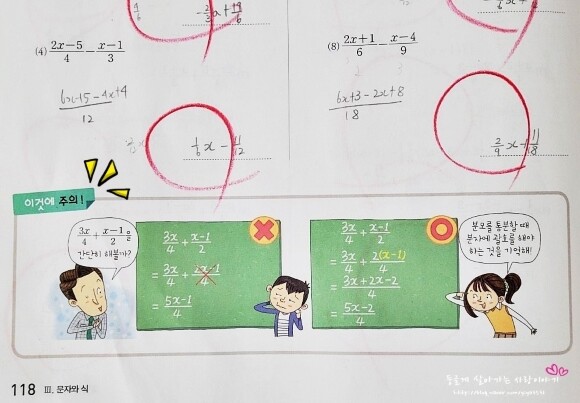 -2/3 a + 19/6
(4) 2x-5/4 - x-1/3
6x-15-4x+4/12
1/6 x - 11/12
(8) 2x+1/6 - x-4/9
6x+3-2x+8/18
2/9 x + 11/18
이것에 주의!
3x/4 + x-1/2 을
간단히 해볼까?
3x/4 + x-1/2
= 3x/4 + 2x-1/4
= 5x-1/4
3x/4 + x-1/2
= 3x/4 + 2(x-1)/4
= 3x+2x-2/4
= 5x-2/4
분모를 통분할 때
분자에 괄호를 해야
하는 것을 기억해!
118 Ⅲ. 문자와 식